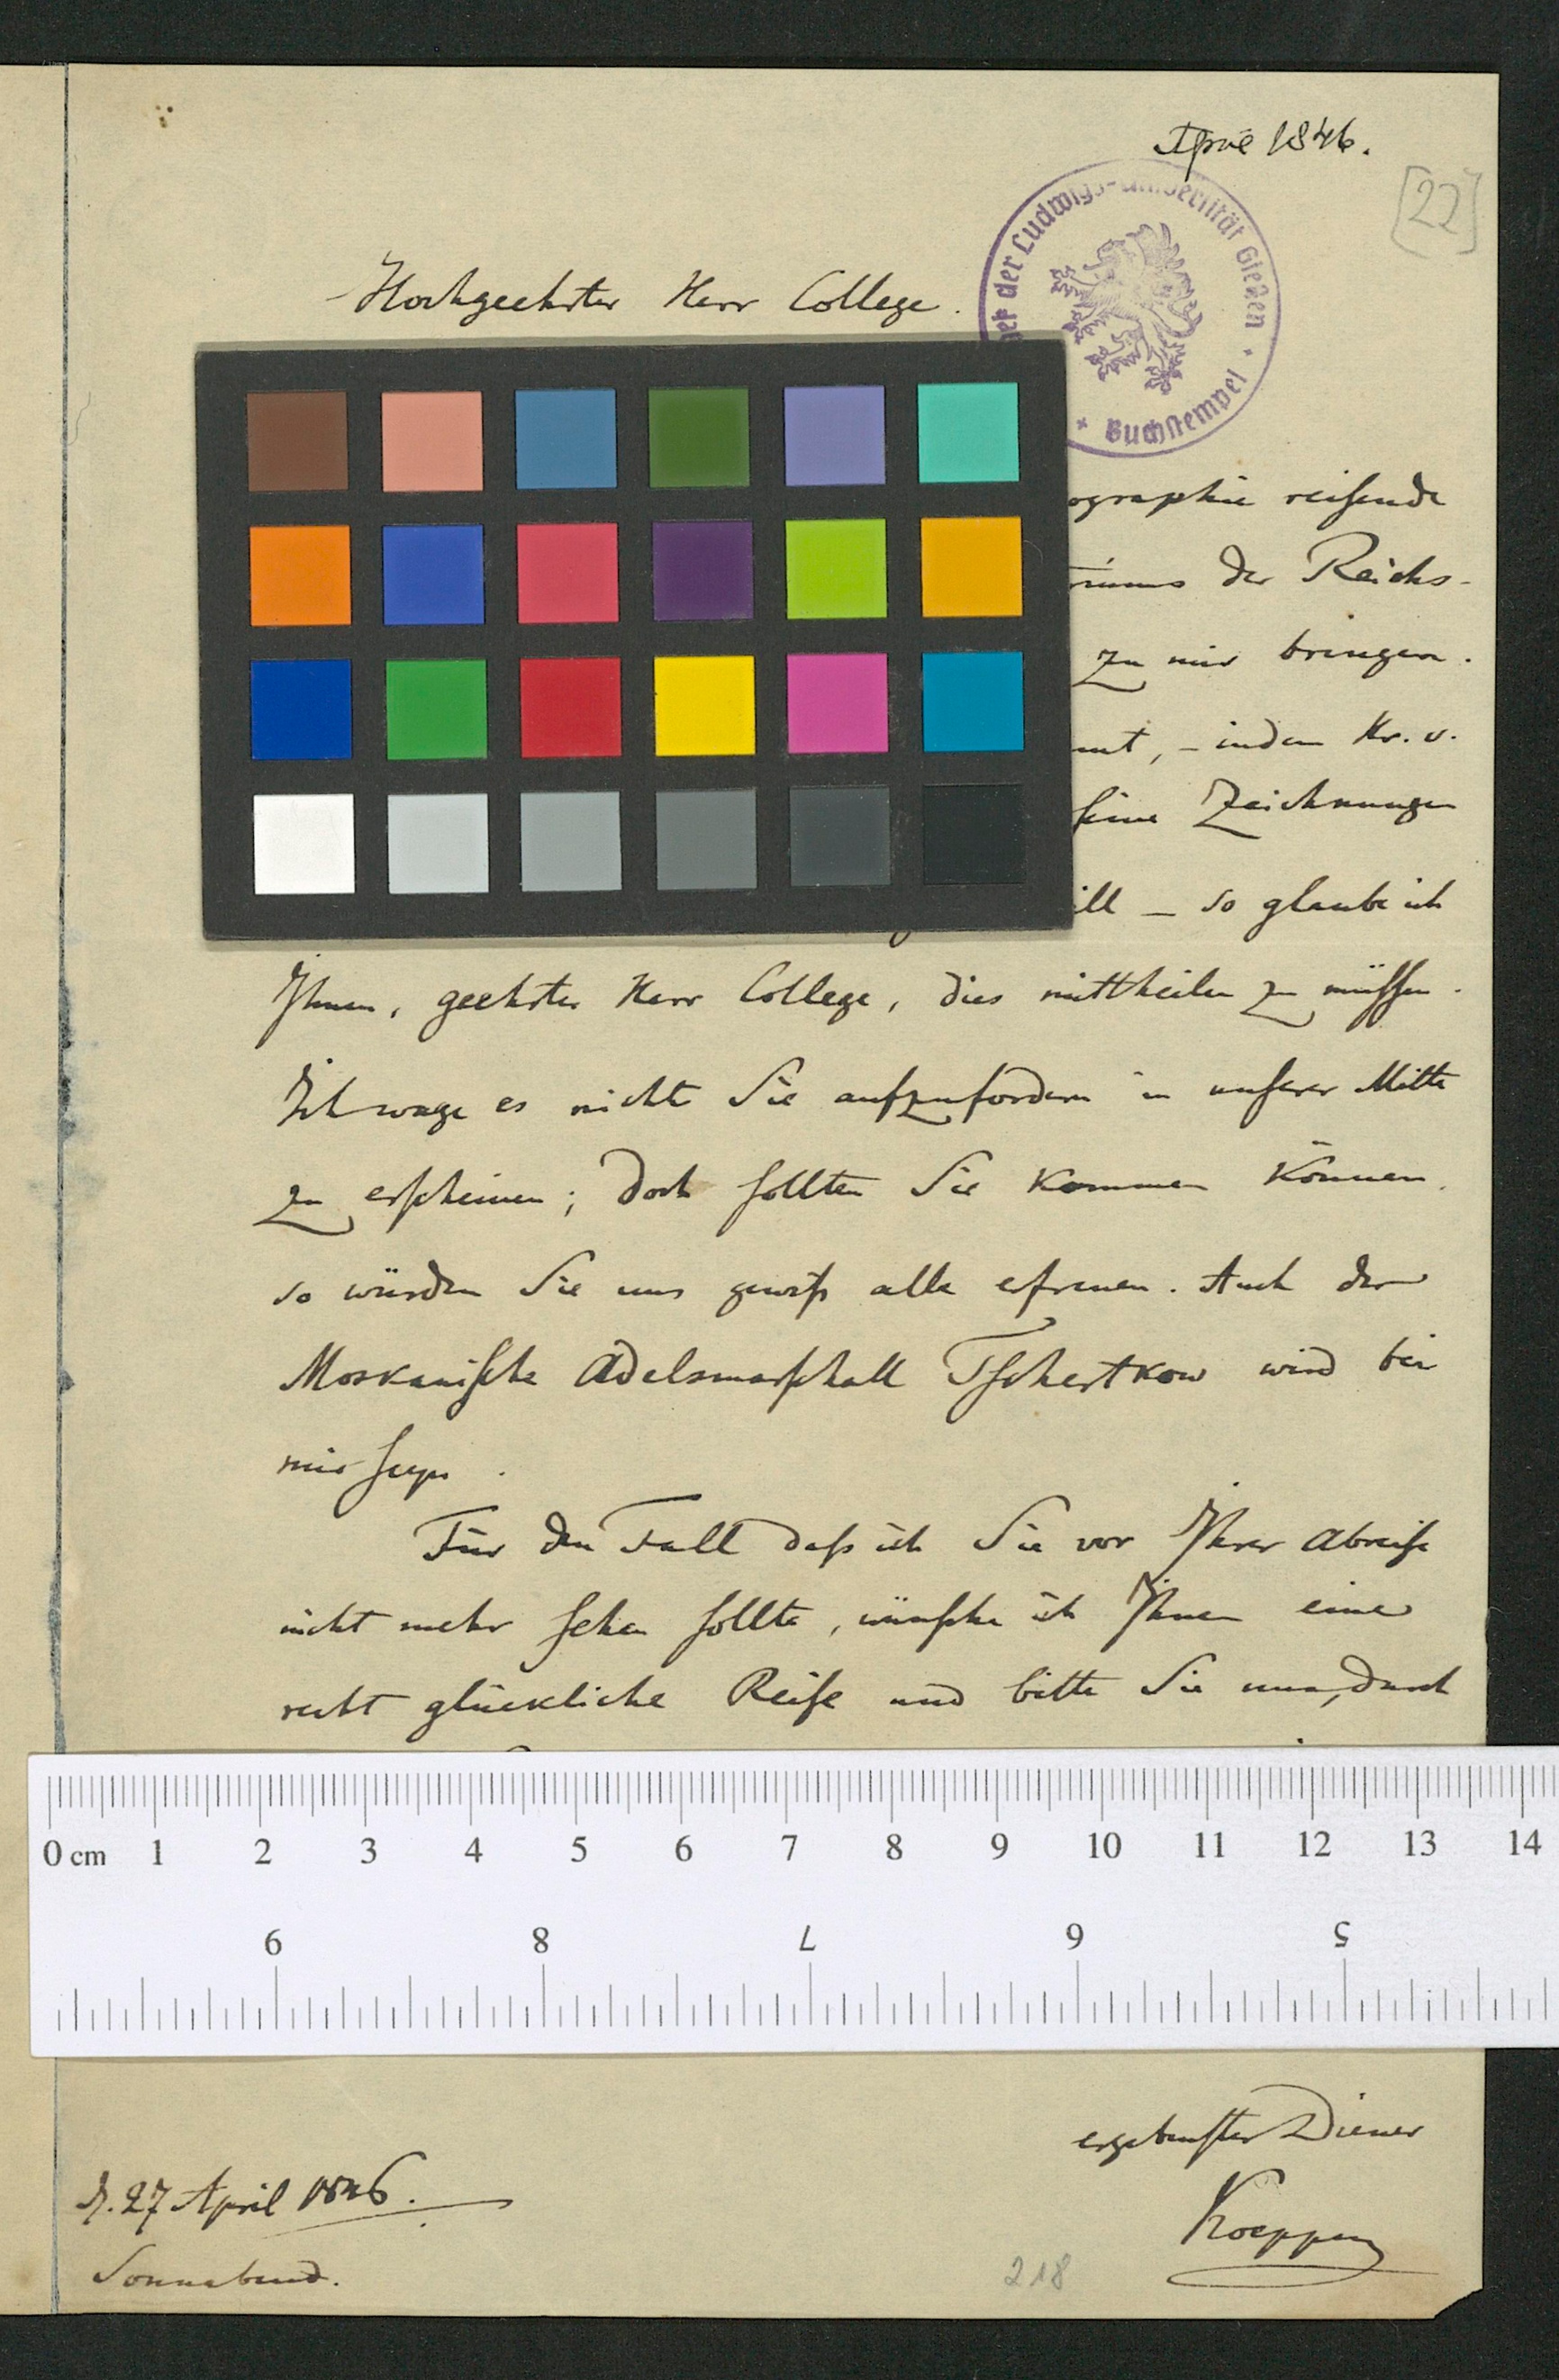 April 1846.
[22]
der Ludwigs-Universität Gießen
Buchstempel
Hochgeehrter Herr College.
ographie reisende
der Reichs-
zu mir bringen.
mt, - indem Hr. v.
seine Zeichnungen
ill - so glaube ich
Ihnen, geehrter Herr College, dies mittheilen zu müssen.
Ich wage es nicht Sie aufzufordern in unserer Mitte
zu erscheinen; doch sollten Sie kommen können,
so würden Sie uns gewiß alle erfreuen. Auch der
Moskauische Adelsmarschall Tschertkow wird bei
mir seyn.
Für den Fall daß ich Sie vor Ihrer Abreise
nicht mehr sehen sollte, wünsche ich Ihnen eine
recht glückliche Reise und bitte Sie nun, durch
0 cm 1 2 3 4 5 6 7 8 9 10 11 12 13 14
9 8 7 6 5
ergebenster Diener
Koeppen
d. 27 April 1846.
Sonnabend.
218